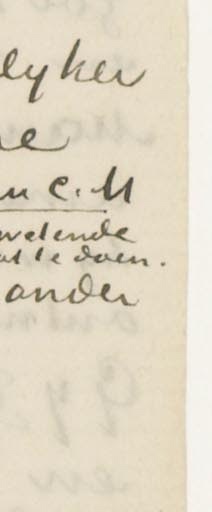 elyker
ne
en C. M
wetende
at te doen.
ander